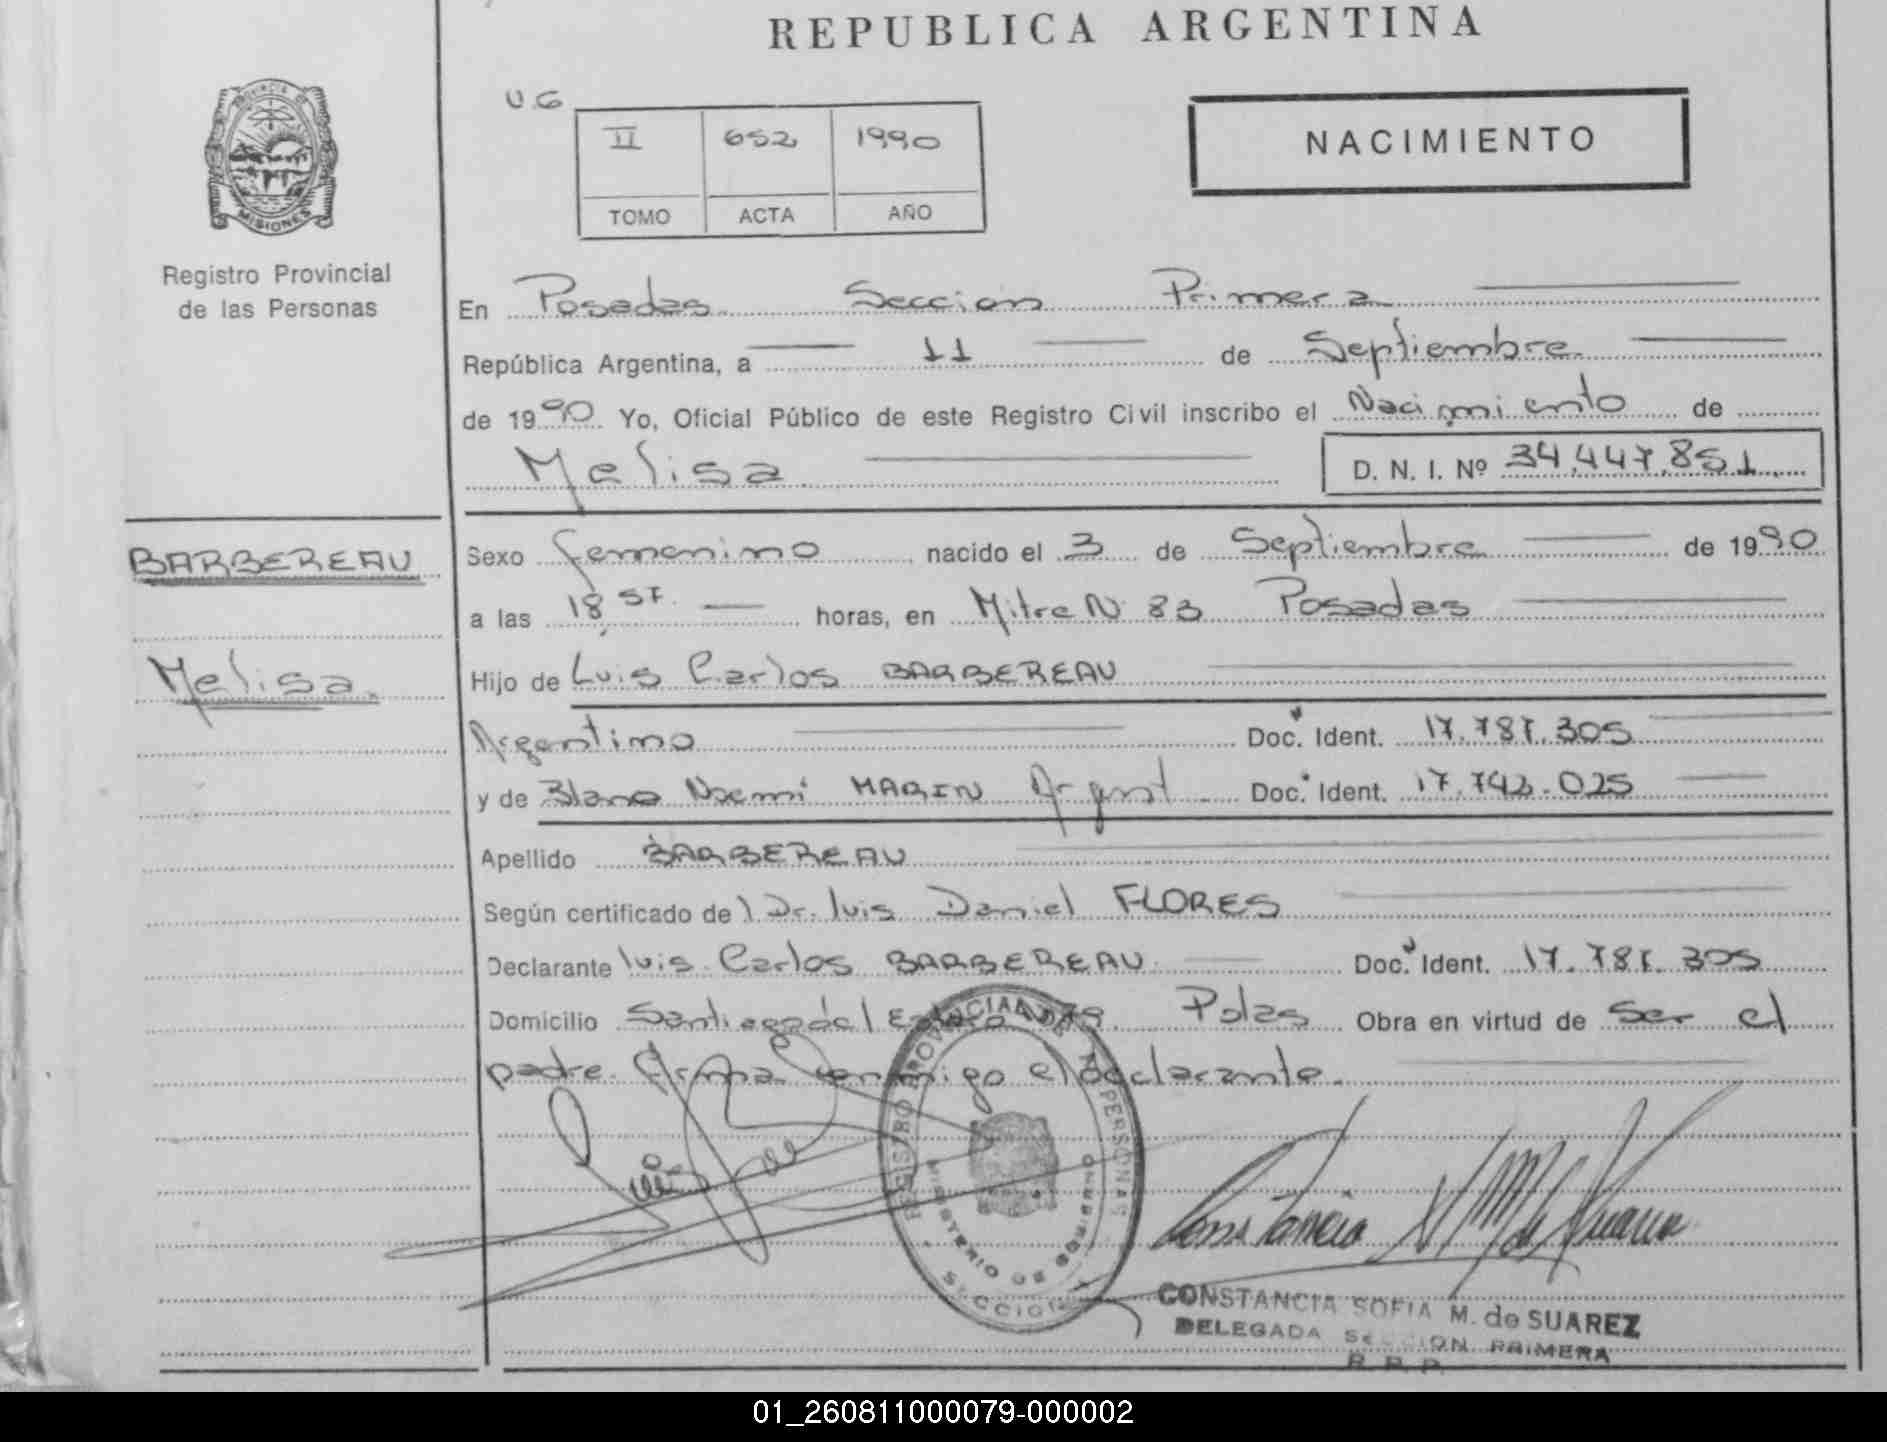 REPUBLICA ARGENTINA
U.G
II 652 1990
TOMO ACTA AÑO
NACIMIENTO
PROVINCIA DE
MISIONES
Registro Provincial
de las Personas
En Posadas Seccion Primera
República Argentina, a 11 de Septiembre
de 1990 Yo, Oficial Público de este Registro Civil inscribo el Nacimiento de
Melisa D. N. I. Nº 34.447.851
BARBEREAU
Melisa
Sexo femenino nacido el 3 de Septiembre de 1990
a las 18 horas, en Mitre N 83 Posadas
Hijo de Luis Carlos BARBEREAU
Argentino Doc. Ident. 17.787.305
y de Noemi MARIN Argent Doc. Ident. 17.742.025
Apellido BARBEREAU
Según certificado de Dr. luis Daniel FLORES
Declarante luis Carlos BARBEREAU Doc. Ident. 17.787.305
Domicilio Santiago del Estero Pdas Obra en virtud de Ser el
padre. Firma conmigo el declarante.
REGISTRO PROVINCIAL DE PERSONAS
MINISTERIO DE GOBIERNO
SECCION
Constancia de Suarez
CONSTANCIA SOFIA M. de SUAREZ
DELEGADA SECCION PRIMERA
R. P. P.
01_260811000079-000002